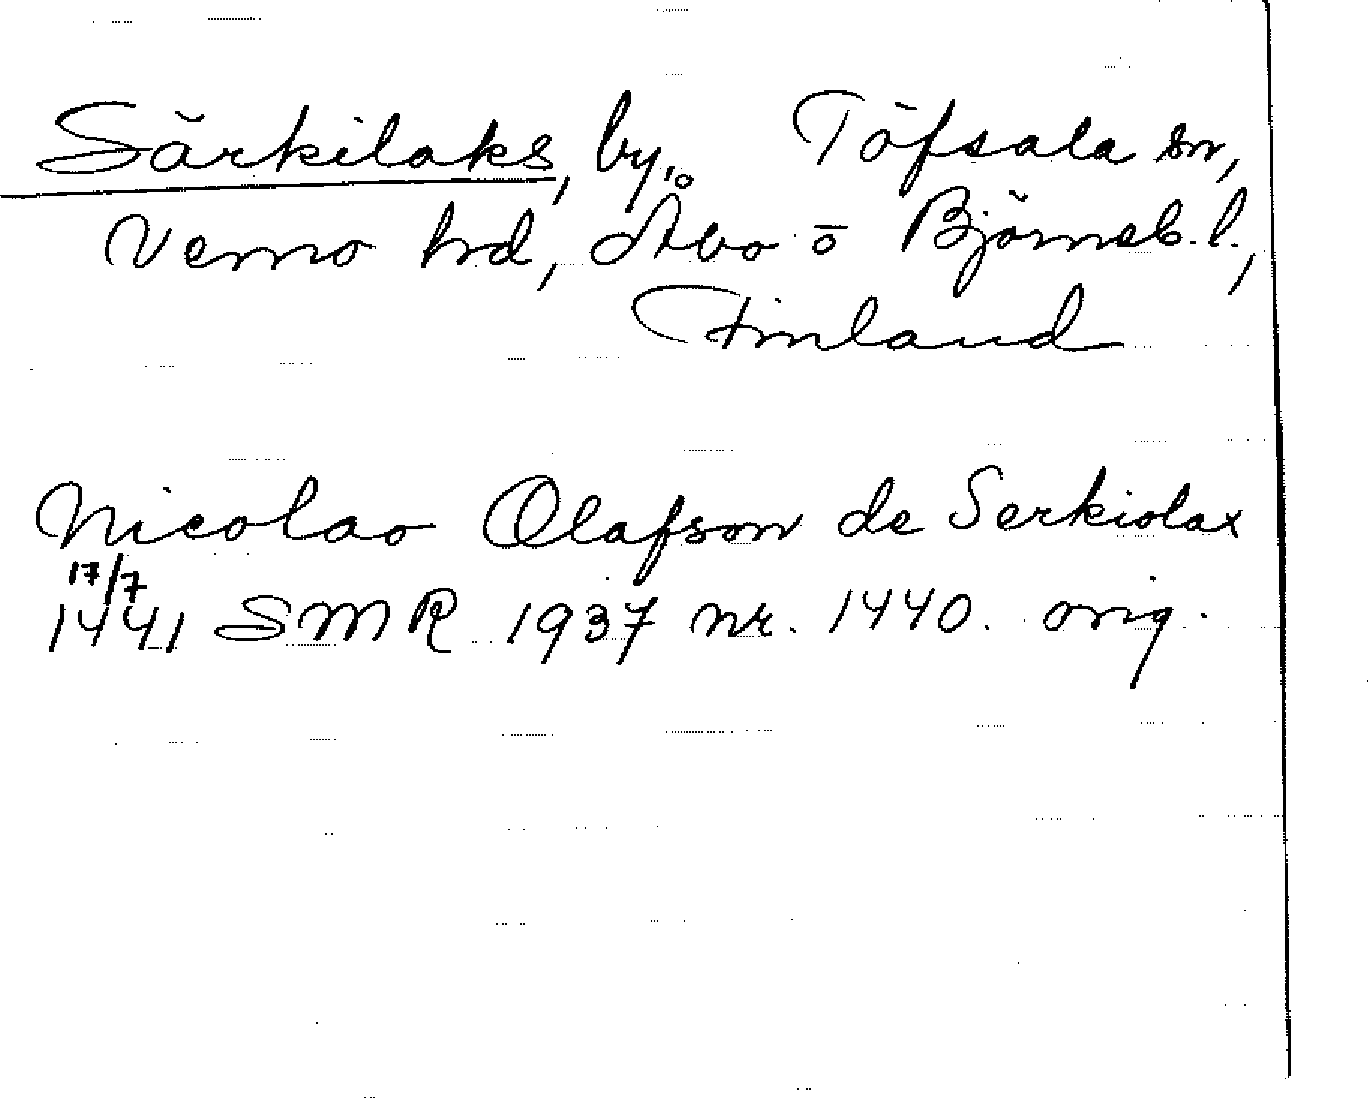 Särkilaks, by, Töfsala sn,
Vemo hd, Åbo o Björneb. l.,
Finland
Nicolao Olafson de Serkiolax
17/7
1441 SMR 1937 nr. 1440. orig.